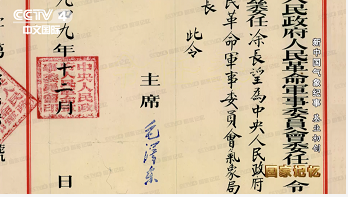 CCTV 4
中文国际
人民政府人民革命軍事委員會委任令
委任 涂長望為中央人民政府
民革命軍事委員會氣象局
長
此令
主席 毛澤東
九年十二月 日
字第 號
新中国气象纪事 基业初创
国家记忆